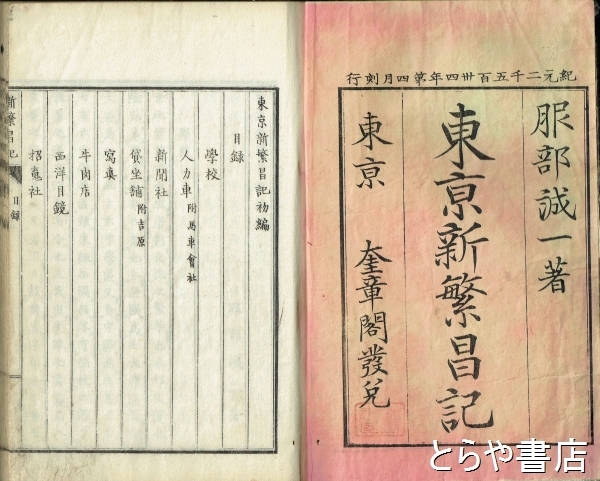 紀元二千五百卅四年第四月刻行
服部誠一著
東京新繁昌記
東亰 奎章閣發兌
東京新繁昌記初編
目録
學校
人力車 附馬車會社
新聞社
貸坐舗 附吉原
寫真
牛肉店
西洋目鏡
招魂社
新繁昌記 目録
とらや書店